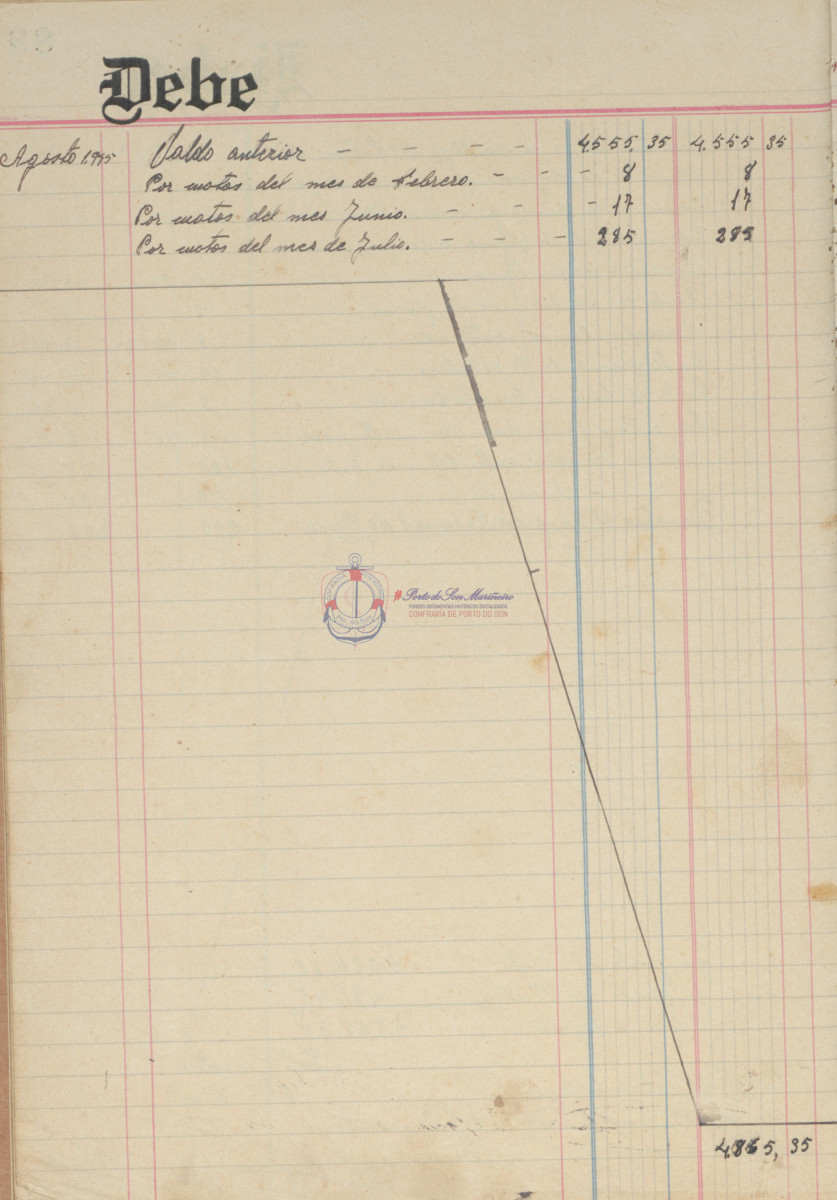 Debe
Agosto 1.945 Saldo anterior - - - - 4.555, 35 4.555 35
Por motos del mes de Febrero. - - - 8 8
Por motos del mes Junio. - - - 17 17
Por motos del mes de Julio. - - - 285 285
#Porto do Son Mariñeiro
FONDOS DOCUMENTAIS HISTÓRICOS DIXITALIZADOS
CONFRARÍA DE PORTO DO SON
4.865, 35